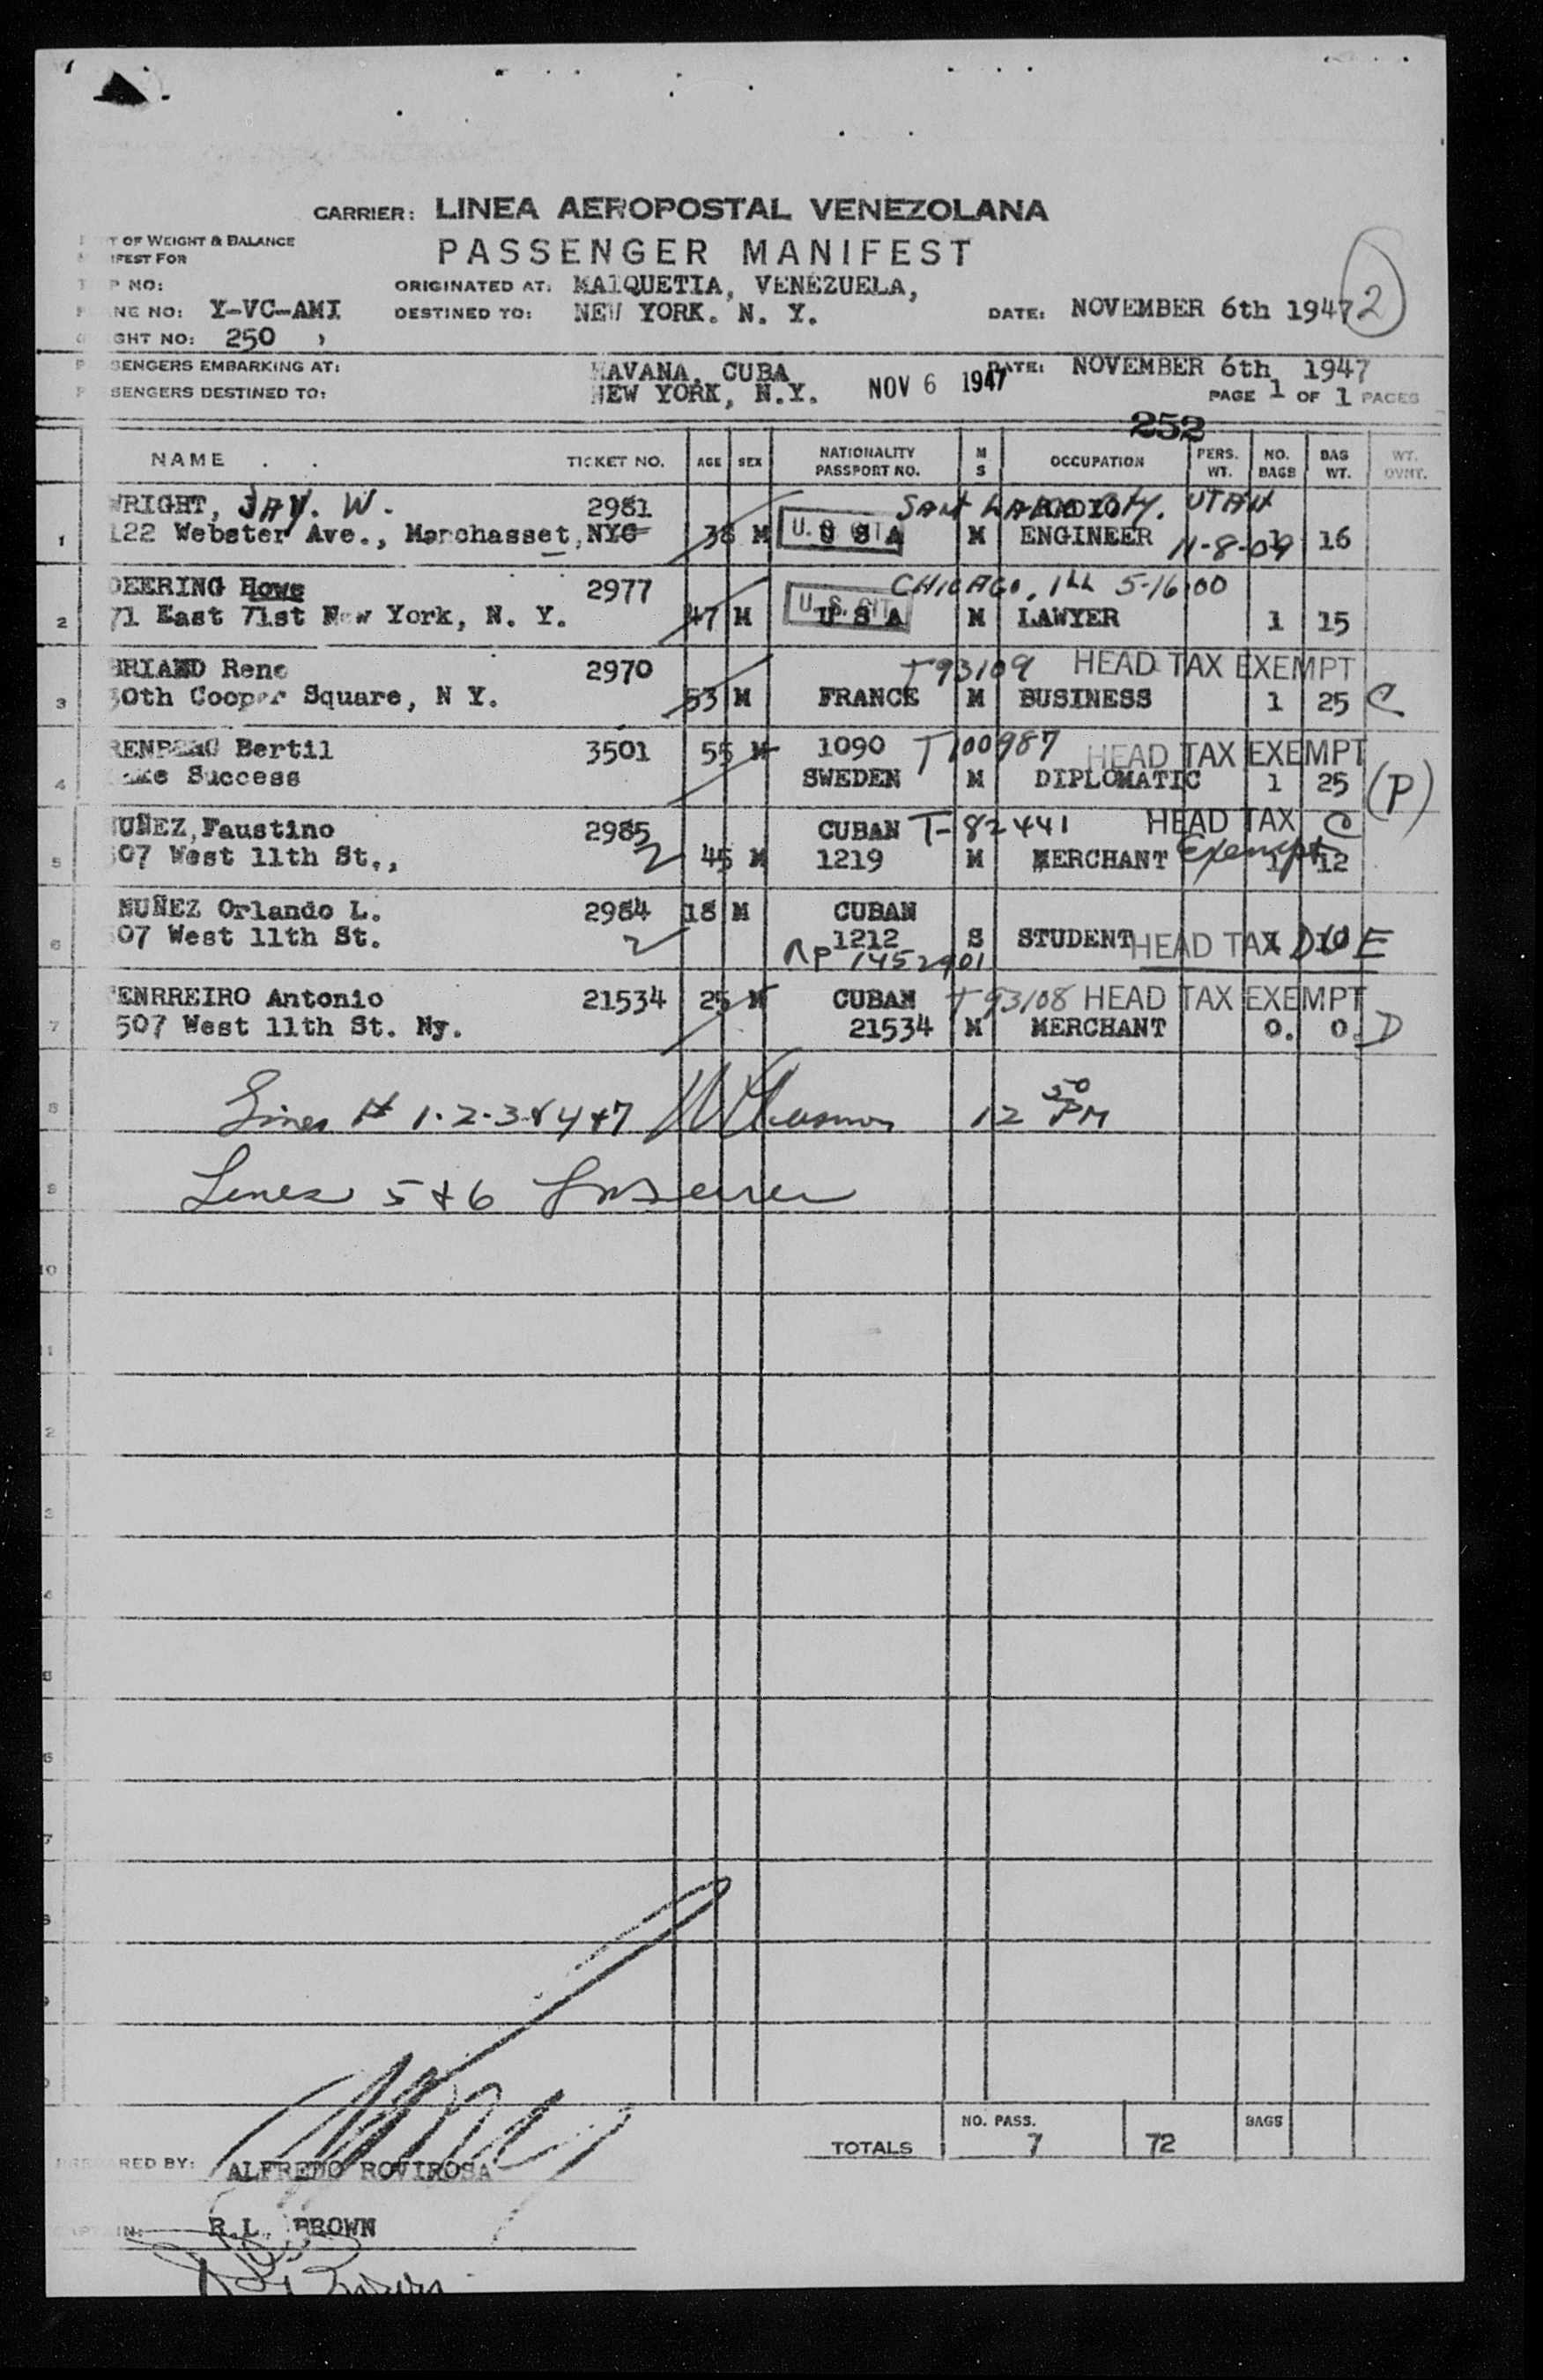 CARRIER: LINEA AEROPOSTAL VENEZOLANA
OF WEIGHT & BALANCE
PASSENGER MANIFEST
IFEST FOR
P NO: ORIGINATED AT: MAIQUETIA, VENEZUELA,
NE NO: Y-VC-AMI DESTINED TO: NEW YORK. N. Y. DATE: NOVEMBER 6th 1947 2
GHT NO: 250
SENGERS EMBARKING AT: HAVANA, CUBA DATE: NOVEMBER 6th 1947
SENGERS DESTINED TO: NEW YORK, N.Y. NOV 6 1947 PAGE 1 OF 1 PAGES
252
NAME TICKET NO. AGE SEX NATIONALITY PASSPORT NO. M S OCCUPATION PERS. WT. NO. BAGS BAG WT. WT. OVNT.
WRIGHT, JAY. W. 2981 SALT LAKE City. UTAH
1 122 Webster Ave., Manchasset, NYC 38 M U.S. CIT U S A M RADIO ENGINEER 11-8-09 1 16
DEERING Howe 2977 CHICAGO, Ill 5-16-00
2 71 East 71st New York, N. Y. 47 M U.S. CIT U S A M LAWYER 1 15
BRIAND Rene 2970 T93109 HEAD TAX EXEMPT
3 30th Cooper Square, N Y. 53 M FRANCE M BUSINESS 1 25 C
Bertil 3501 55 M 1090 T100987 HEAD TAX EXEMPT
4 Lake Success SWEDEN M DIPLOMATIC 1 25 (P)
NUÑEZ, Faustino 2985 CUBAN T-82441 HEAD TAX C
5 507 West 11th St., 45 M 1219 M MERCHANT Exempt 1 12
NUÑEZ Orlando L. 2984 18 M CUBAN
6 507 West 11th St. 1212 S STUDENT HEAD TAX DUE
Rp 1452901
FENRREIRO Antonio 21534 25 M CUBAN T93108 HEAD TAX EXEMPT
7 507 West 11th St. Ny. 21534 M MERCHANT 0. 0. D
8 Lines # 1-2-3-&4+7 12 50 PM
9 Lines 5+6
10
NO. PASS. BAGS
TOTALS 7 72
RED BY: ALFREDO ROVIROSA
R.L. BROWN